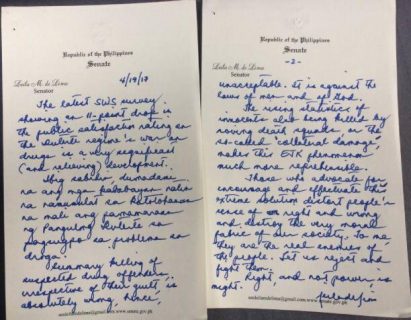 Republic of the Philippines
Senate
Leila M. de Lima
Senator
4/19/17
The latest SWS survey
showing an 11-point drop in
the public satisfaction rating on
the Duterte regime's war on
drugs is a very significant
(and relieving) development.
Ibig sabihin dumadami
na ang mga kababayan natin
na namumulat sa katotohanan
na mali ang pamamaraan
ng Pangulong Duterte sa
pagsugpo sa problema sa
droga.
Summary killing of
suspected drug offenders,
irrespective of their guilt, is
absolutely wrong, hence,
senleilamdelima@gmail.com, www.senate.gov.ph
Republic of the Philippines
Senate
-2-
Leila M. de Lima
Senator
unacceptable. It is against the
laws of men and of God.
The rising statistics of
innocents also being killed by
roving death squads, or the
so-called "collateral damage,"
makes this EJK phenomenon
much more reprehensible.
Those who advocate for,
encourage and effectuate this
extreme solution distort people's
sense of right and wrong
and destroy the very moral
fabric of our society. To me,
they are the real enemies of
the people. Let us reject and
fight them.
Right, and not power, is
might.
senleilamdelima@gmail.com, www.senate.gov.ph